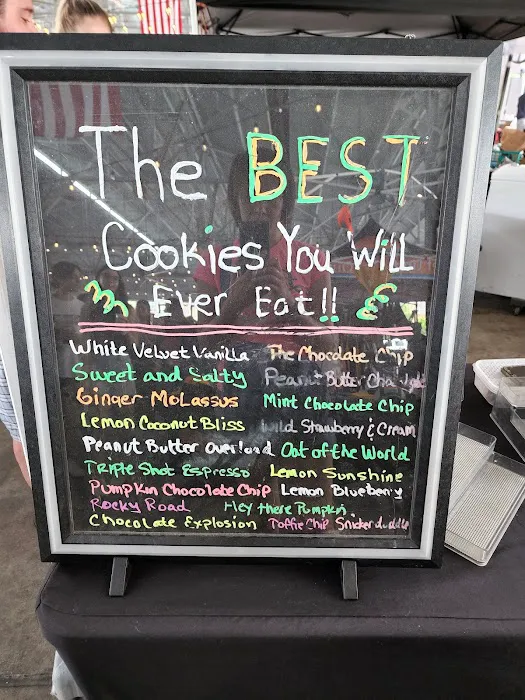 The BEST
Cookies You Will
Ever Eat!!
White Velvet Vanilla The Chocolate Chip
Sweet and Salty Peanut Butter
Ginger MoLassus Mint Chocolate Chip
Lemon Coconut Bliss Wild Strawberry & Cream
Peanut Butter overload Oat of the World
Triple Shot Espresso Lemon Sunshine
Pumpkin Chocolate Chip Lemon Blueberry
Rocky Road Hey there Pumpkin
Chocolate Explosion Toffie Chip Snickerdoodle